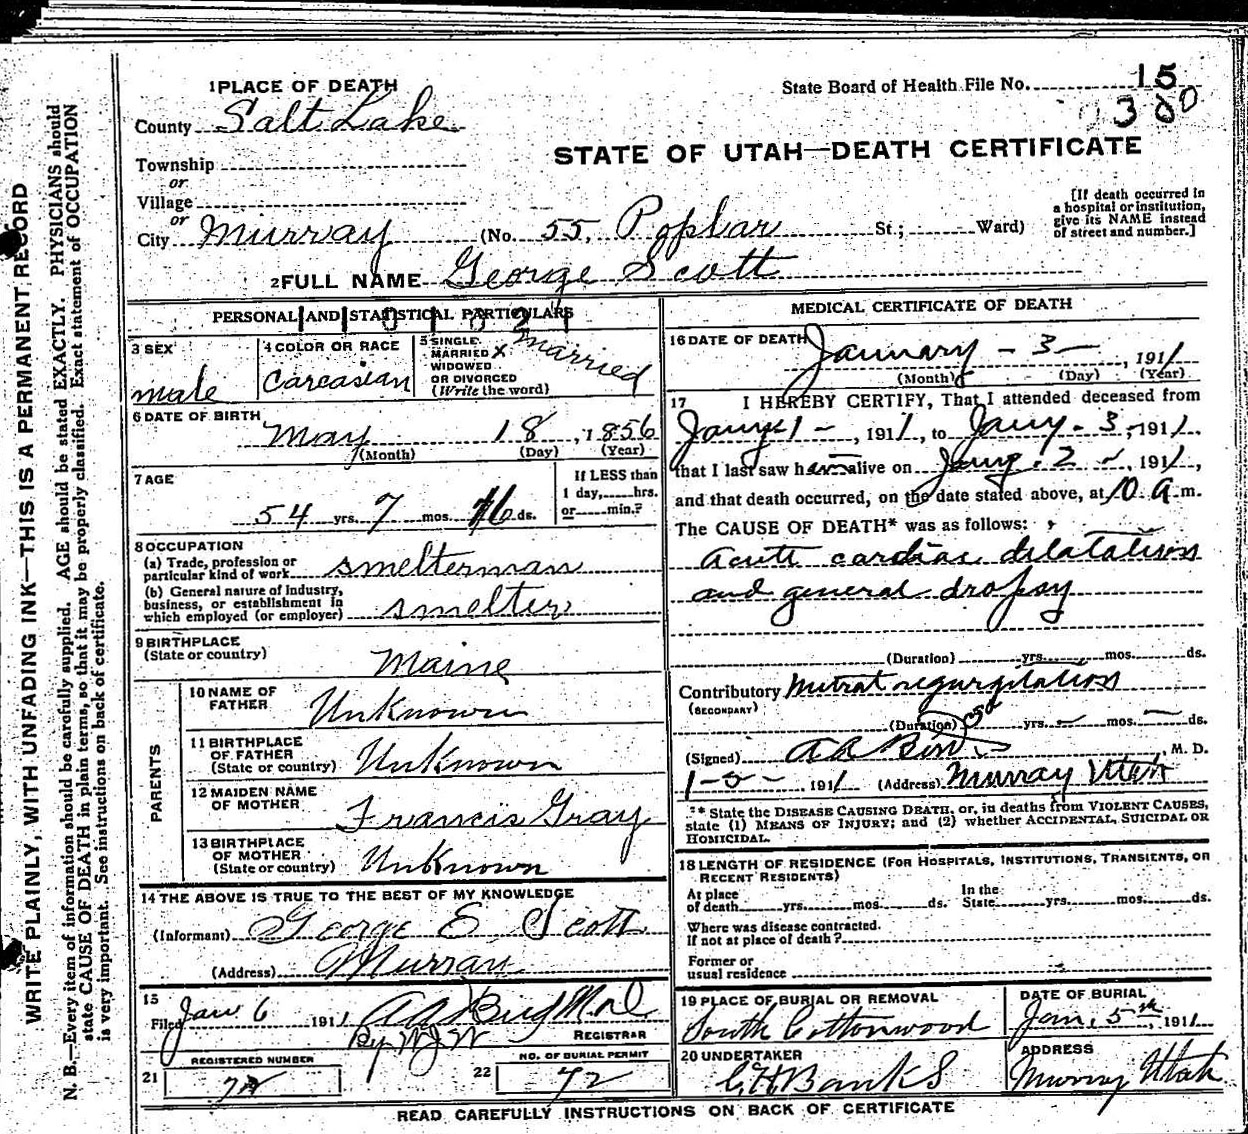 WRITE PLAINLY, WITH UNFADING INK—THIS IS A PERMANENT RECORD
N. B.—Every item of information should be carefully supplied. AGE should be stated EXACTLY. PHYSICIANS should
state CAUSE OF DEATH in plain terms, so that it may be properly classified. Exact statement of OCCUPATION
is very important. See instructions on back of certificate.
1 PLACE OF DEATH
State Board of Health File No. 15
County Salt Lake
380
STATE OF UTAH—DEATH CERTIFICATE
Township
or
Village
or
City Murray (No. 55, Poplar St; Ward)
[If death occurred in
a hospital or institution,
give its NAME instead
of street and number.]
2 FULL NAME George Scott
PERSONAL AND STATISTICAL PARTICULARS
3 SEX
male
4 COLOR OR RACE
Carcasian
5 SINGLE
MARRIED X
WIDOWED
OR DIVORCED
(Write the word)
Married
6 DATE OF BIRTH
May 18, 1856
(Month) (Day) (Year)
7 AGE
54 yrs. 7 mos. 16 ds.
If LESS than
1 day, hrs.
or min.?
8 OCCUPATION
(a) Trade, profession or
particular kind of work smelterman
(b) General nature of industry,
business, or establishment in
which employed (or employer) smelter
9 BIRTHPLACE
(State or country)
Maine
PARENTS
10 NAME OF
FATHER
Unknown
11 BIRTHPLACE
OF FATHER
(State or country)
Unknown
12 MAIDEN NAME
OF MOTHER
Francis Gray
13 BIRTHPLACE
OF MOTHER
(State or country)
Unknown
14 THE ABOVE IS TRUE TO THE BEST OF MY KNOWLEDGE
(Informant) George E Scott
(Address) Murray
15
Filed Jan 6 1911
By W J W REGISTRAR
REGISTERED NUMBER
21 72
NO. OF BURIAL PERMIT
22 72
MEDICAL CERTIFICATE OF DEATH
16 DATE OF DEATH
January - 3 - , 1911
(Month) (Day) (Year)
17 I HEREBY CERTIFY, That I attended deceased from
1 - , 1911, to Jany. 3, 1911.
that I last saw him alive on Jany. 2 - , 1911,
and that death occurred, on the date stated above, at 10 a.m.
The CAUSE OF DEATH* was as follows:
acute cardiac dilatations
and general dropsy
(Duration) yrs. mos. ds.
Contributory Mitral regurgitations
(SECONDARY)
(Duration) yrs. - mos. - ds.
(Signed) , M. D.
1911 (Address) Murray Utah
* State the DISEASE CAUSING DEATH, or, in deaths from VIOLENT CAUSES,
state (1) MEANS OF INJURY; and (2) whether ACCIDENTAL, SUICIDAL OR
HOMICIDAL.
18 LENGTH OF RESIDENCE (FOR HOSPITALS, INSTITUTIONS, TRANSIENTS, OR
RECENT RESIDENTS)
At place
of death yrs. mos. ds.
In the
State yrs. mos. ds.
Where was disease contracted.
If not at place of death?
Former or
usual residence
19 PLACE OF BURIAL OR REMOVAL
South Cottonwood
DATE OF BURIAL
Jan. 5th, 1911
20 UNDERTAKER
C. H. Banks
ADDRESS
Murray Utah
READ CAREFULLY INSTRUCTIONS ON BACK OF CERTIFICATE